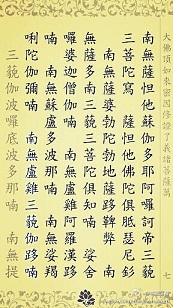 大佛頂如來密因修證了義諸菩薩萬
七
南無薩怛他蘇伽多耶阿囉訶帝三藐
三菩陀寫 薩怛他佛陀俱胝瑟尼釤
南無薩婆勃陀勃地薩跢鞞弊 南
無薩多南三藐三菩陀俱知喃 娑舍
囉婆迦僧伽喃 南無盧雞阿羅漢跢
喃 南無蘇盧多波那喃 南無娑羯
唎陀伽彌喃 南無盧雞三藐伽跢喃
三藐伽波囉底波多那喃 南無提